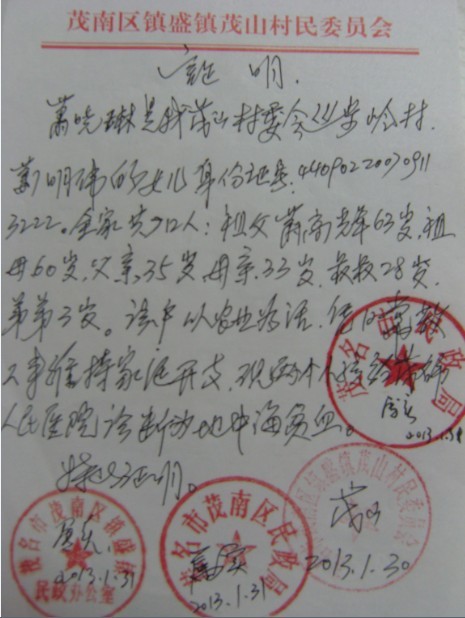 茂南区镇盛镇茂山村民委员会
证明.
萧晓琳是我茂山村委会岭村
萧明伟的女儿身份证号:44090220070911
3222。全家共7口人:祖父萧年63岁,祖
母60岁,父亲35岁,母亲33岁,叔叔28岁,
弟弟3岁。该户以农业为活,
维持家庭开支,现
人民医院诊断为地中海贫血。
茂名市民政局
属实
2013.1.31
特此证明。
茂名市茂南区镇盛镇
民政办公室
属实
2013.1.31
茂名市茂南区民政局
属实
2013.1.31
茂南区镇盛镇茂山村民委员会
2013.1.30